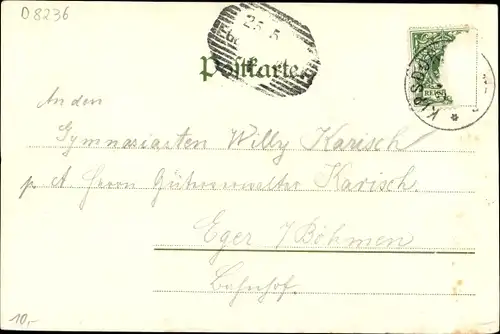 D 8236
25 5
Postkarte
REICH
An den
Gymnasiasten Willy Karisch
p. A Herrn Güterverwalter Karisch.
Eger / Böhmen
Bahnhof.
10,-